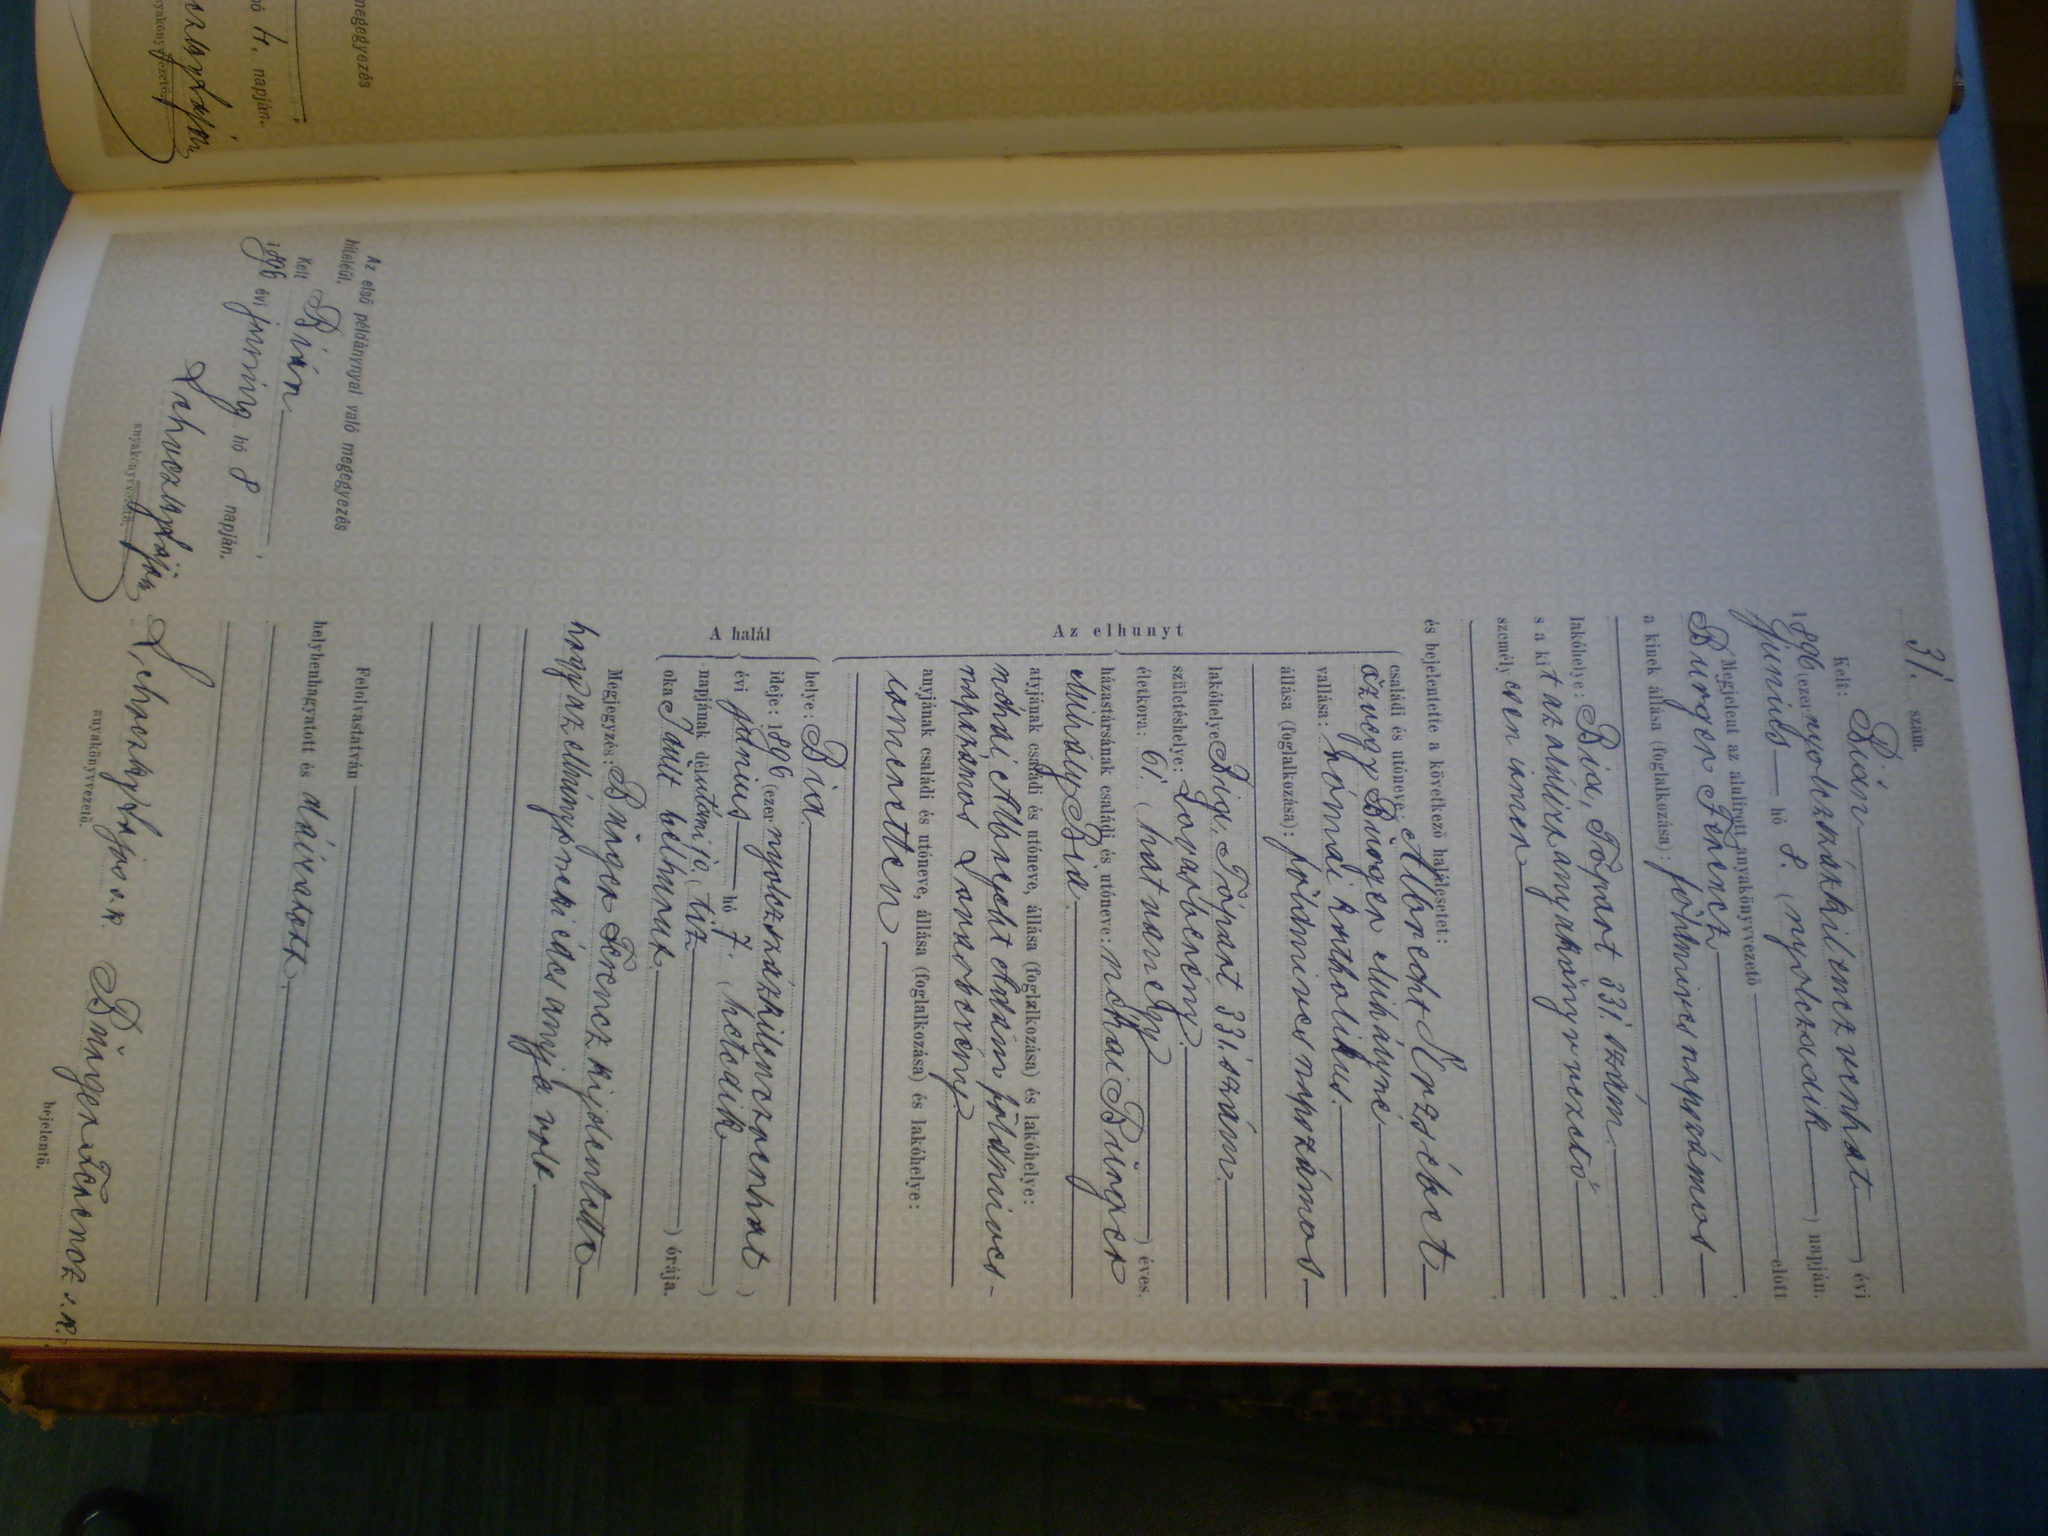 megegyezés
hó 4. napján.
anyakönyvvezető.
31. szám.
Kelt: Bián
1896 (ezer nyolczszázkilenczvenhat) évi
junius hó 8. (nyolczadik) napján.
Megjelent az alulirott anyakönyvvezető előtt
Bürger Ferencz,
a kinek állása (foglalkozása): földmives napszámos
lakóhelye: Bia, Tópart 331. szám,
s a kit az alulirt anyakönyvvezető
személyesen ismer,
és bejelentette a következő halálesetet:
Az elhunyt
családi és utóneve: Albrecht Erzsébet
özvegy Bürger Mihályné
vallása: római katholikus.
állása (foglalkozása): földmives napszámos
lakóhelye Bia, Tópart 331. szám.
születéshelye: Lovasberény.
életkora: 61. (hatvanegy) éves.
házastársának családi és utóneve: néhai Bürger
Mihály Bia.
atyjának családi és utóneve, állása (foglalkozása) és lakóhelye:
néhai Albrecht Ádám földmives-
napszámos Lovasberény
anyjának családi és utóneve, állása (foglalkozása) és lakóhelye:
ismeretlen.
A halál
helye: Bia.
ideje: 1896 (ezer nyolczszázkilenczvenhat)
évi junius hó 7. (hetedik)
napjának délutáni 10. (tiz) órája.
oka Sült bélhurut.
Megjegyzés: Bürger Ferencz kijelentette
hogy az elhúnyt neki édes anyja volt
Felolvastatván
helybenhagyatott és aláiratott.
anyakönyvvezető.
Bürger Ferencz s.k.
bejelentő.
Az első példánynyal való megegyezés
hiteléül.
Kelt Bián,
1896 évi junius hó 8 napján.
anyakönyvvezető.